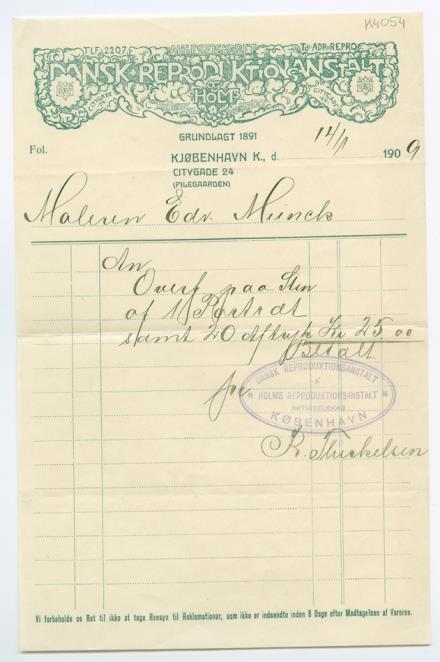 K4054
TLF. 2207. AKTIESELSKABET TLG. ADR. REPRO
DANSK REPRODUKTIONSANSTALT
CITYGADE 24 HOLMS CITYGADE 24
GRUNDLAGT 1891
Fol. KJØBENHAVN K., d. 14/1 1909
CITYGADE 24
(PILEGAARDEN)
Maleren Edv. Munch
An
Overf. paa Sten
af 1 Portræt
samt 20 Aftryk Kr 25 00
Betalt
for
DANSK REPRODUKTIONSANSTALT
&
HOLMS REPRODUKTIONSANSTALT
AKTIESELSKAB
KØBENHAVN
Vi forbeholde os Ret til ikke at tage Hensyn til Reklamationer, som ikke er indsendte inden 8 Dage efter Modtagelsen af Varerne.